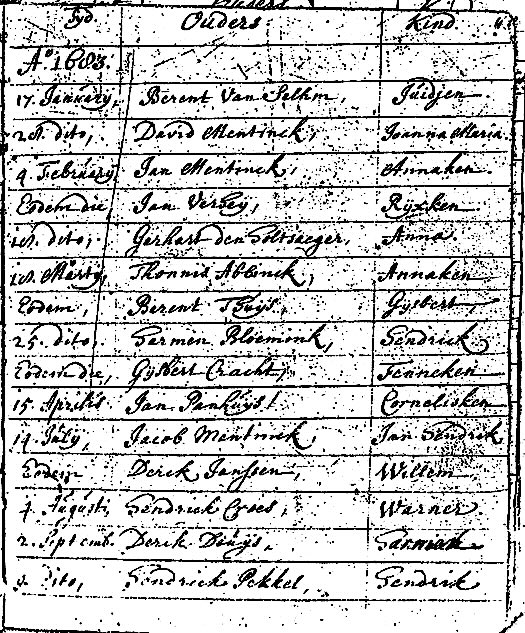 Tyd Ouders Kind
Ao 1683.
17. January, Berent Van Selkm, Juidjen
28. dito, David Mentinck, Joanna Maria
4. February Jan Mentinck, Annaken
Eodem die, Jan Versey, Ryxken
18. dito, Gerhart den Holtsaeger, Anna
18. Marty, Thonnis Abbinck, Annaken
Eodem, Berent Thuys, Gysbert,
25. dito, Harmen Bloemink, Hendrick
Eodem die, Gysbert Cracht, Fenneken
15. Aprilis Jan Panhuys Cornelisken
14. July, Jacob Mentinck, Jan Hendrik
Eodem Derck Janssen, Willem
4. Augusti, Hendrick Croes, Warner
2. Septemb. Derck Deuys, Harmen
9. Dito, Hendrick Pekkel, Hendrik